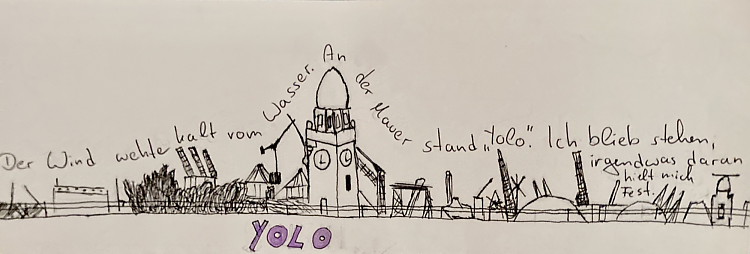 Der Wind wehte kalt vom Wasser. An der Mauer stand „Yolo“. Ich blieb stehen,
irgendwas daran
hielt mich
fest.
YOLO